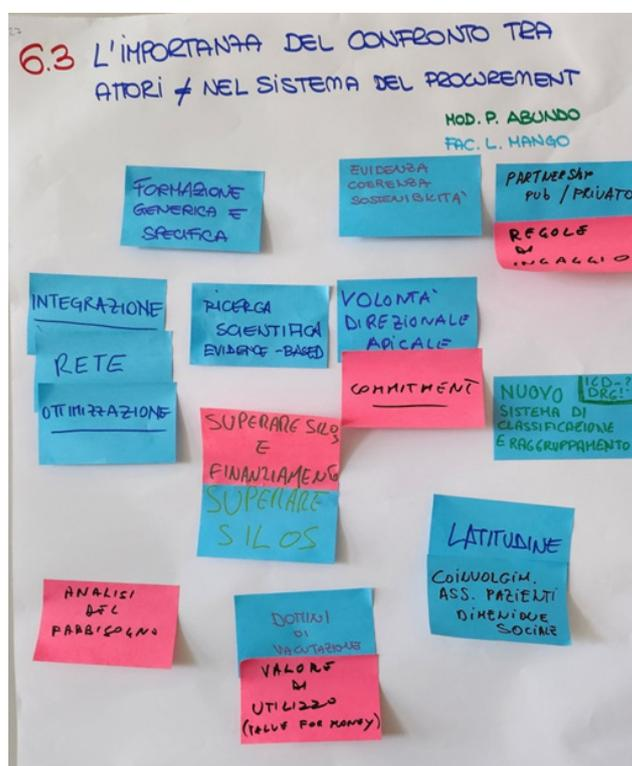 6.3 L'IMPORTANZA DEL CONFRONTO TRA
ATTORI ≠ NEL SISTEMA DEL PROCUREMENT
MOD. P. ABUNDO
FAC. L. MANGO
FORMAZIONE
GENERICA E
SPECIFICA
EVIDENZA
COERENZA
SOSTENIBILITÀ
PARTNERSHIP
PUB / PRIVATO
REGOLE
DI
INGAGGIO
INTEGRAZIONE
RETE
OTTIMIZZAZIONE
RICERCA
SCIENTIFICA
EVIDENCE-BASED
VOLONTÀ
DIREZIONALE
APICALE
COMMITMENT
NUOVO
ICD-?
DRG!
SISTEMA DI
CLASSIFICAZIONE
E RAGGRUPPAMENTO
SUPERARE SILOS
E
FINANZIAMENG
SUPERARE
SILOS
LATITUDINE
COINVOLGIM.
ASS. PAZIENTI
DIMENIONE
SOCIALE
ANALISI
DEL
FABBISOGNO
DOMINI
DI
VALUTAZIONE
VALORE
DI
UTILIZZO
(VALUE FOR MONEY)